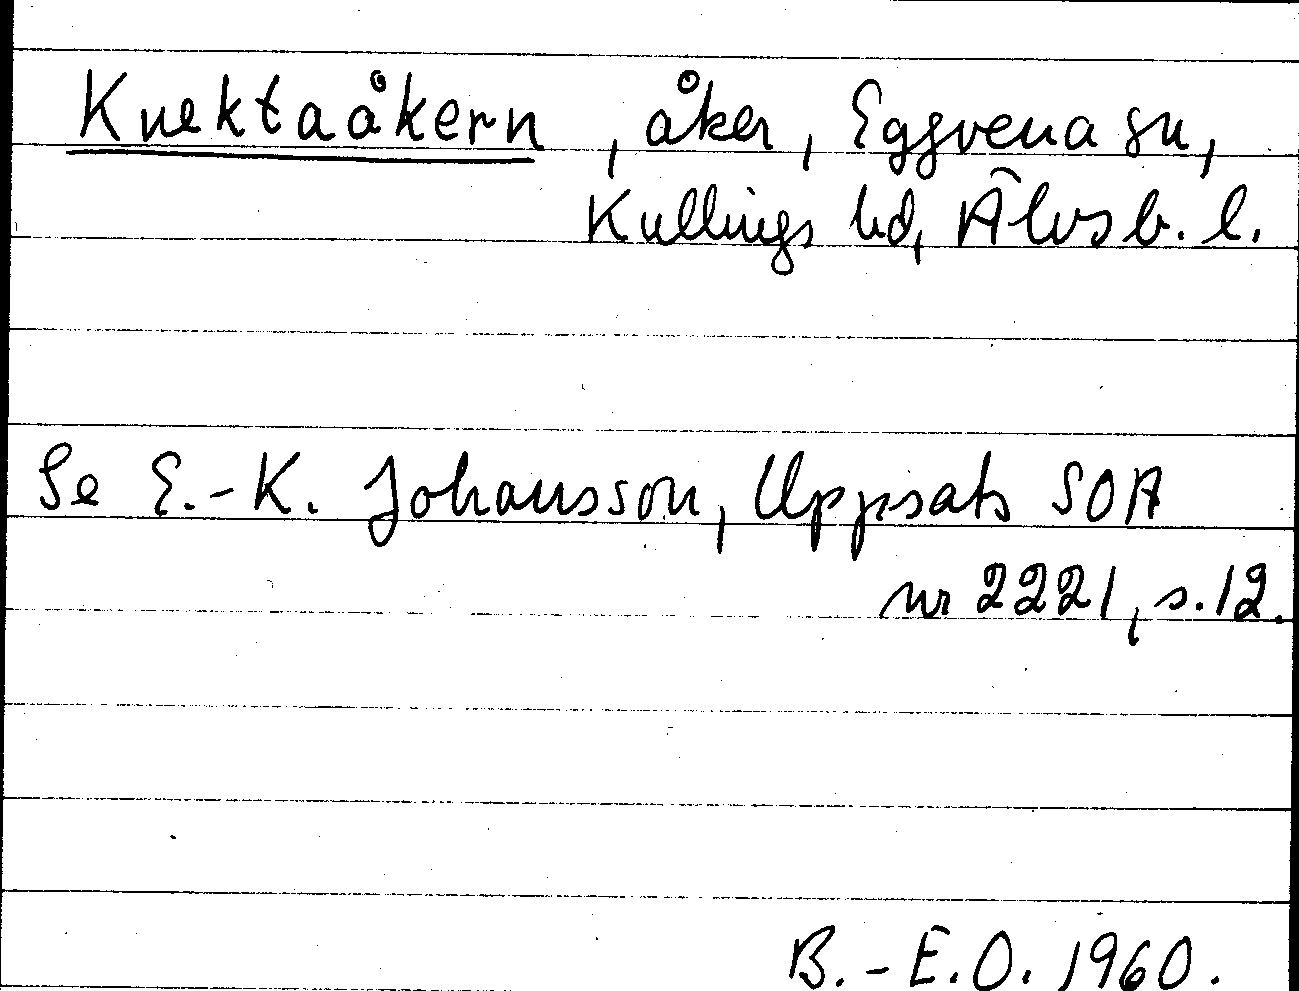 Knektaåkern, åker, Eggvena sn,
Kullings hd, Älvsb. l.
Se E.-K. Johansson, Uppsats SOA
nr 2221, s. 12.
B.-E.O. 1960.